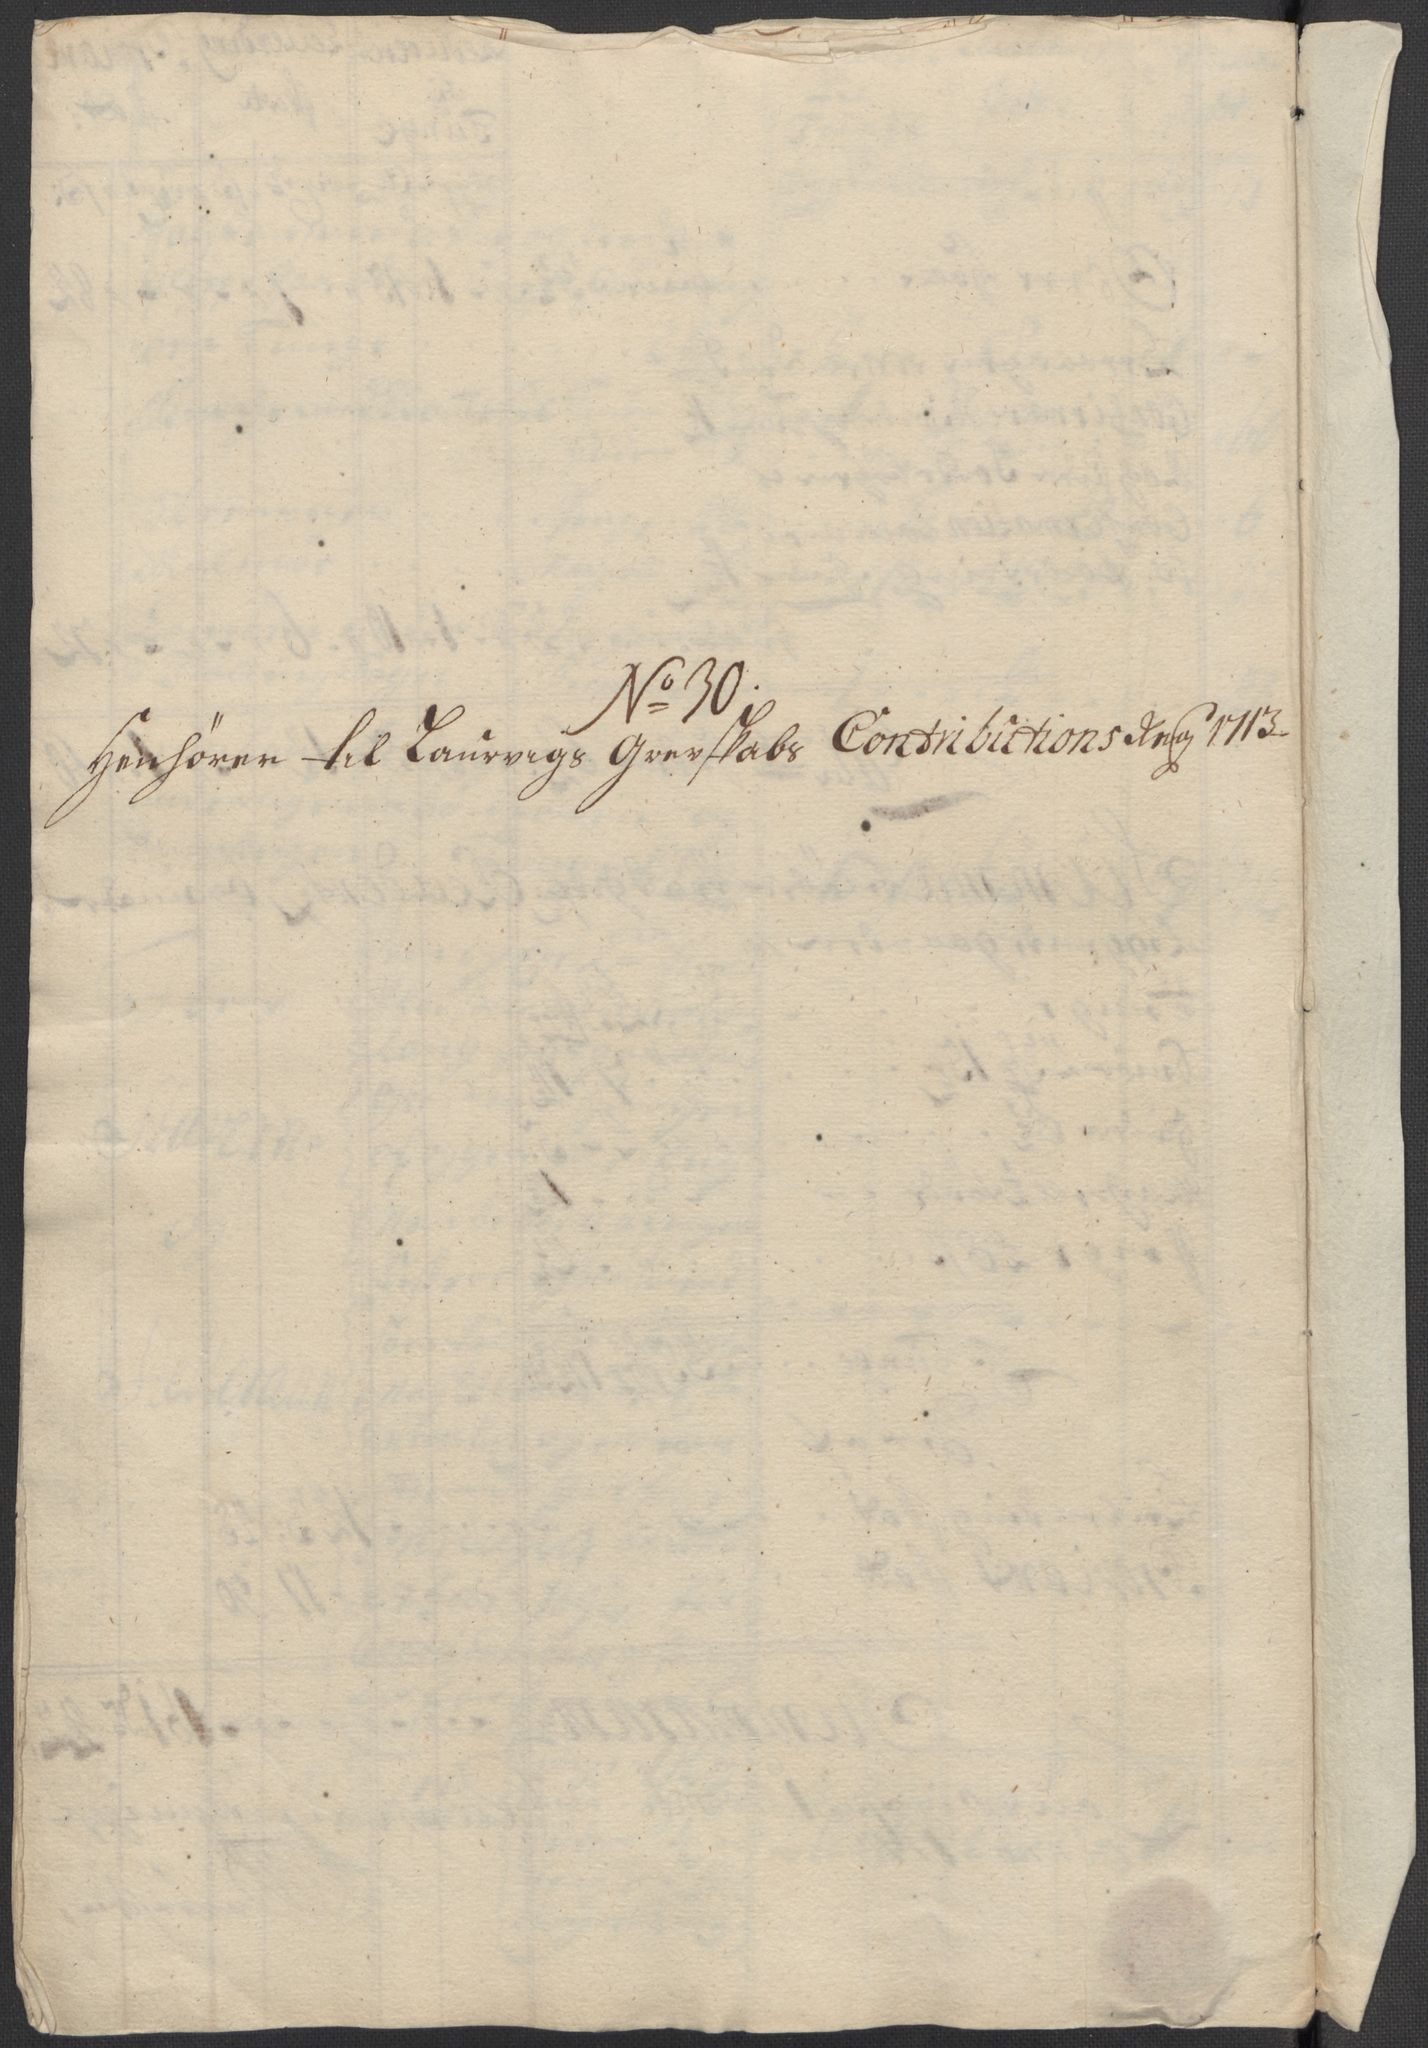 No 30.
Henhörer til Laurvigs Grevskabs Contributions Regs 1713